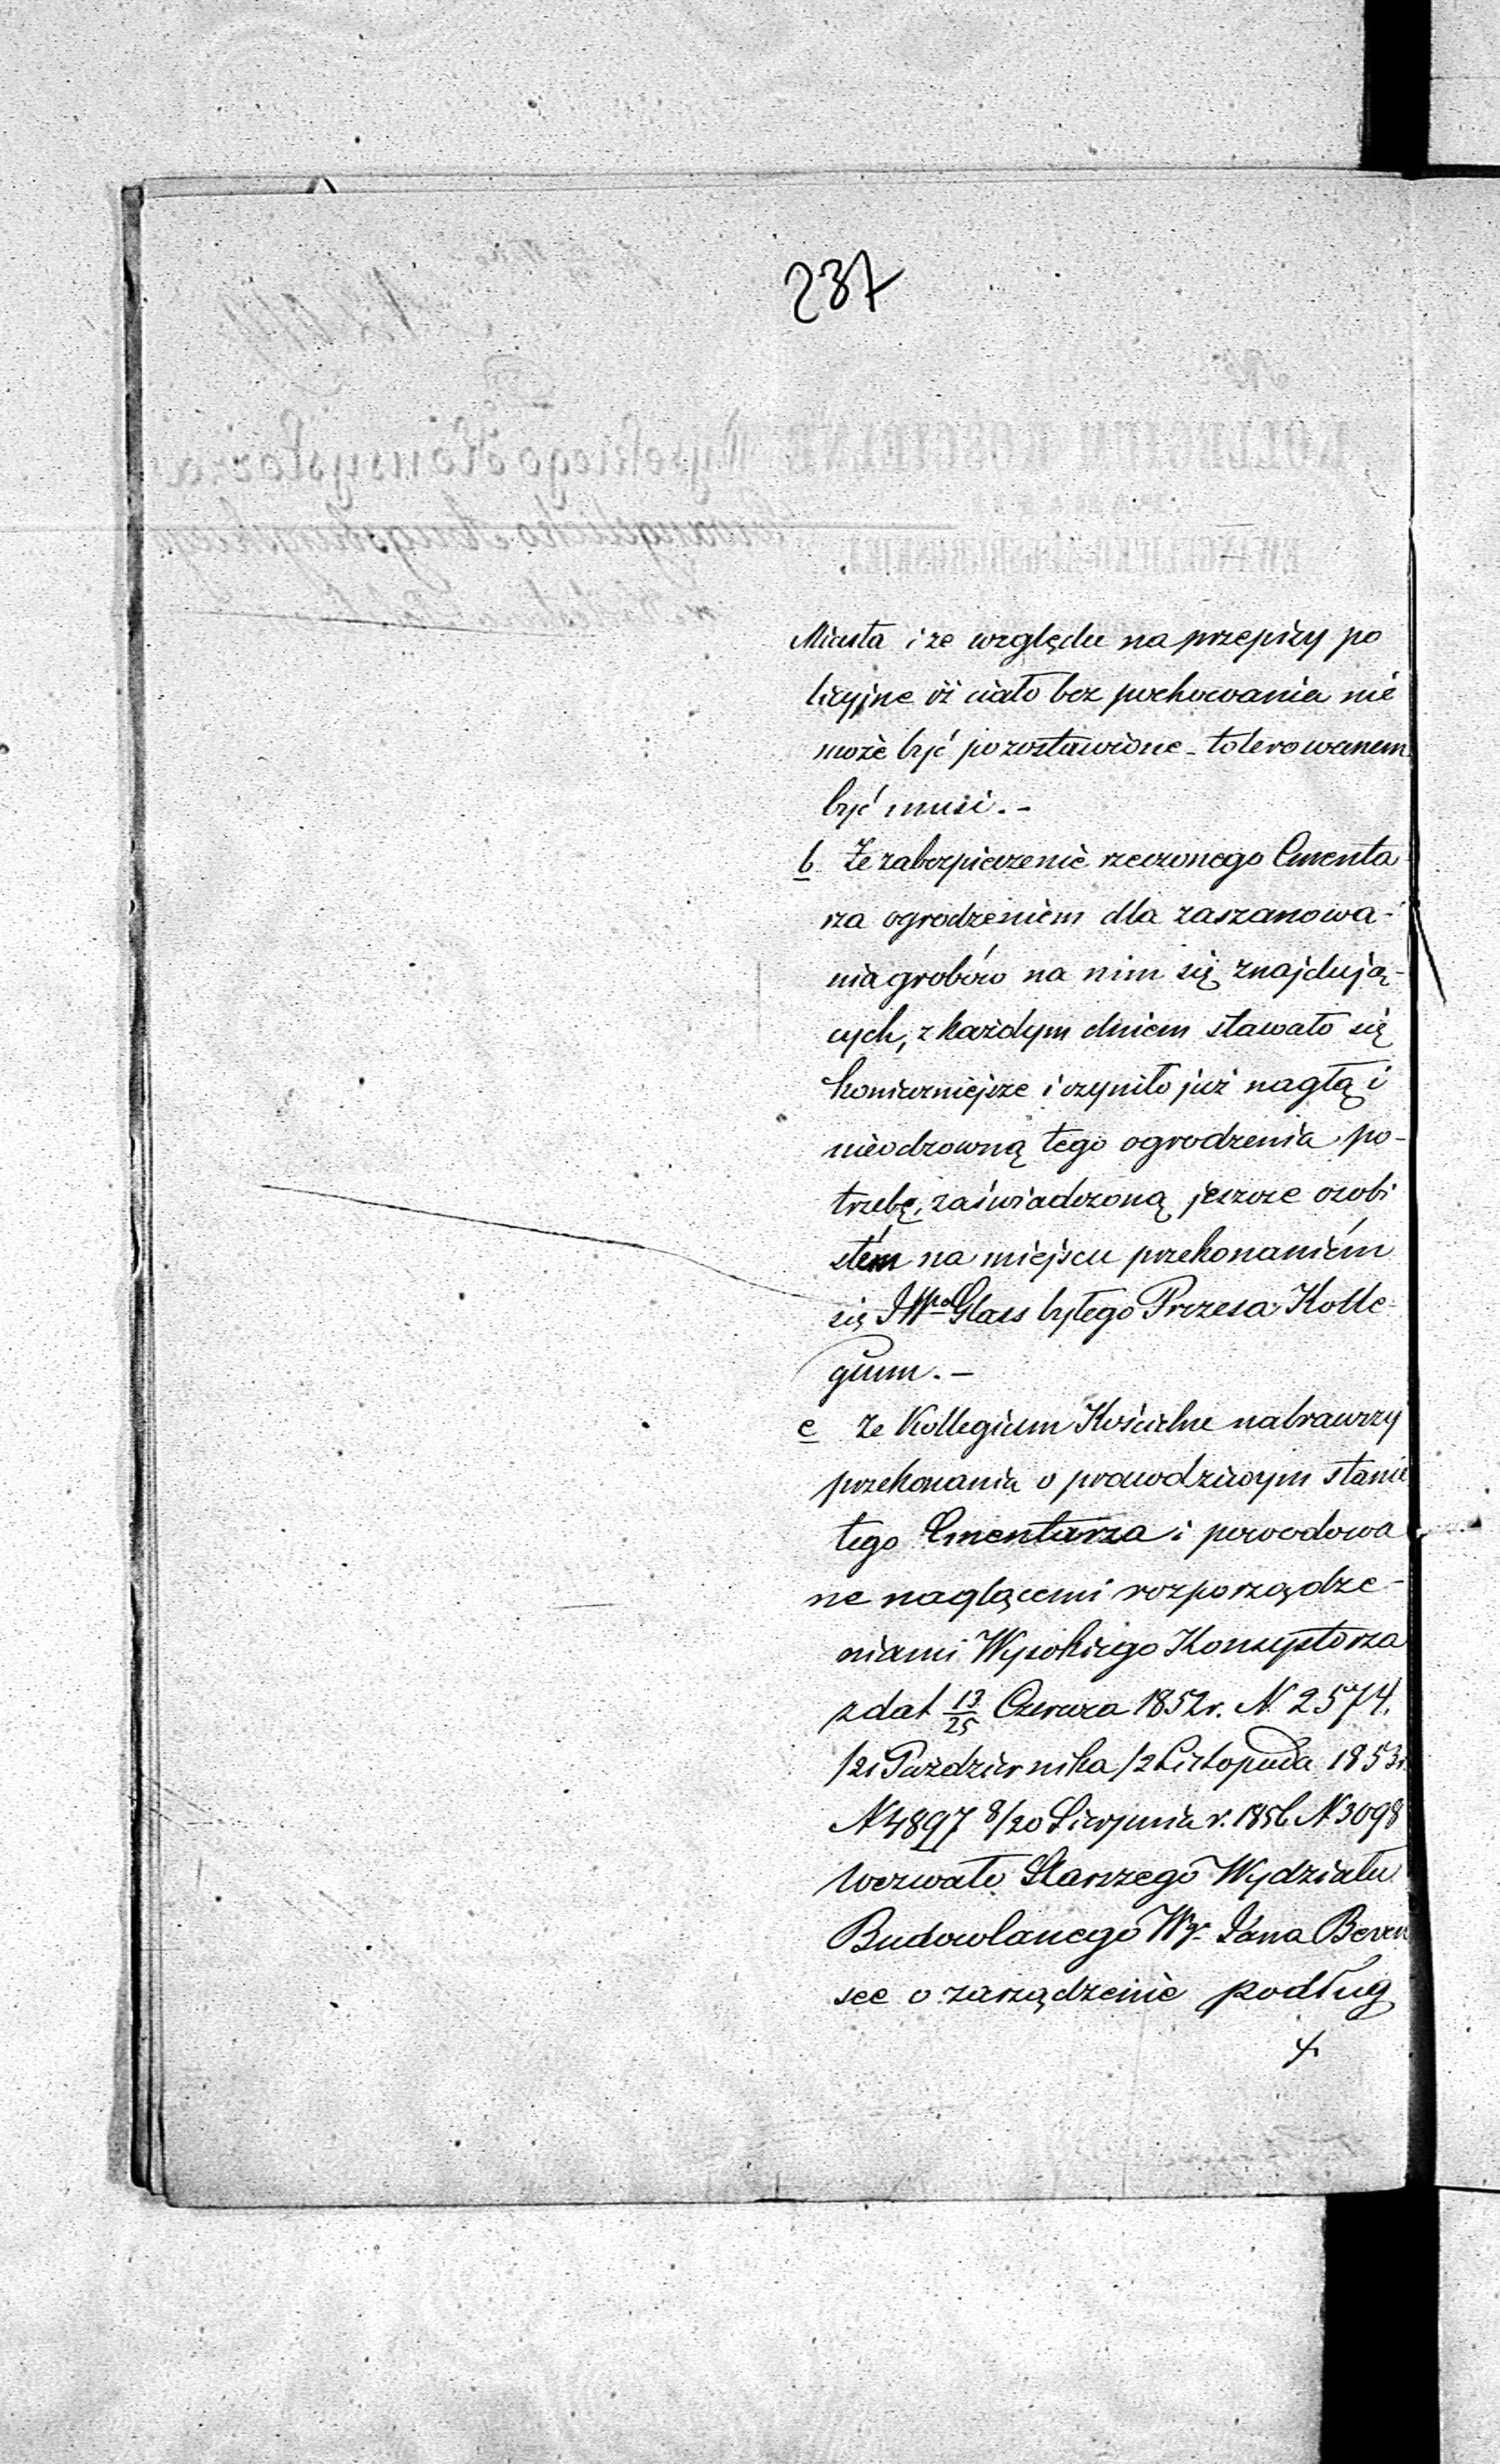 237
Miasta i ze względu na przepisy po
licyjne iż ciało bez pochowania nie
może być pozostawione - tolerowanem
być musi. -
b Że zabezpieczenie rzeczonego Cmenta
rza ogrodzeniem dla zaszanowa-
nia grobów na nim się znajdują-
cych, z każdym dniem stawało się
konieczniejsze i czyniło już nagłą i
nieodzowną tego ogrodzenia po-
trzebę, zaświadczoną jeszcze osobi
stém na miejscu przekonaniém
się Glass byłego Prezesa Kolle-
gium. -
c Że Kollegium Kościelne nabrawszy
przekonania o prawdziwym stanie
tego Cmentarza i powodowa
ne naglącemi rozporządze-
niami Wysokiego Konsystorza
z dat 13/25 Czerwca 1852 r. N. 2574.
/21 Października /2 Listopada 1853 r.
N 4897 8/20 Sierpnia r. 1856 N 3098
wezwało Starszego Wydziału
Budowlanego Wgo Jana Beren
see o zarządzenie podług